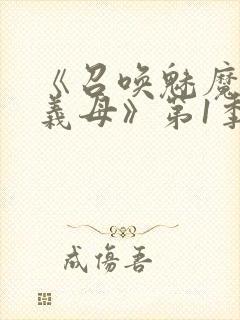 《召唤魅魔
義母》第1季
成傷吾